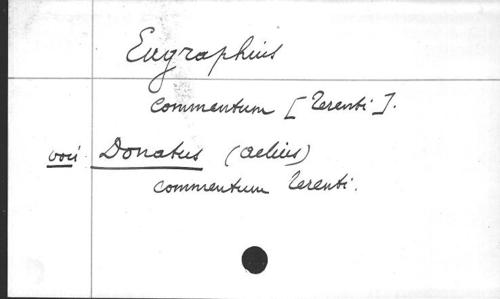 Eugraphius
commentum [Terenti].
voir Donatus (Aelius)
commentum Terenti.